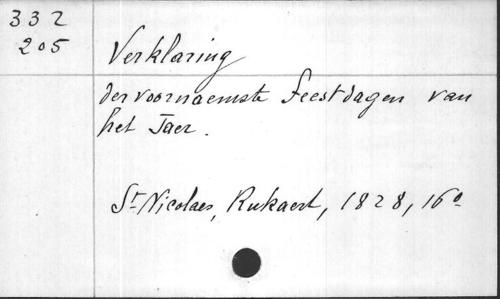 332
205
Verklaring
der voornaemste feestdagen van
het Jaer.
St Nicolaes, Rukaert, 1828, 16o